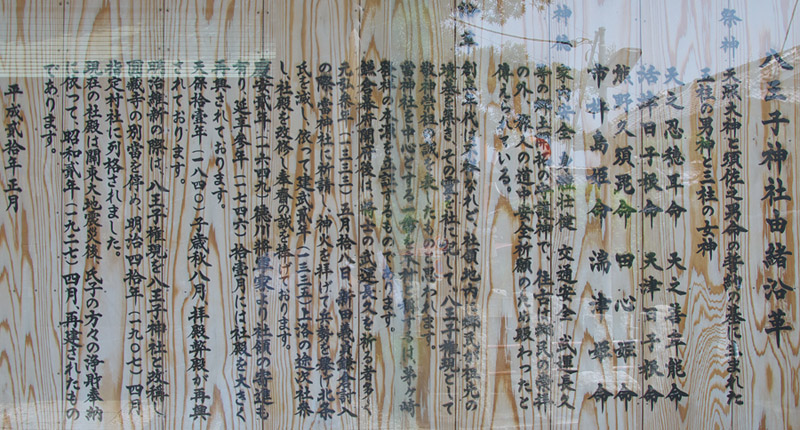 八王子神社由緒沿革
祭神 天照大神と須佐之男命の誓約の基にふまれた
五柱の男神と三柱の女神
天之忍穂耳命 天之菩卑能命
活津日子根命 天津日子根命
熊野久須毘命 田心姫命
市杵島姫命 湍津姫命
神徳 家内安全 身体壮健 交通安全 武運長久
等の郷土 の守護神で、往古は郷民の崇拝
の外、旅人の道中安全祈願のため賑わったと
伝えられている。
創立年代は不詳なれど、社領地内に郷氏が祖先の
墳墓を築き、その霊を社に祀して、八王子権現として
敬神崇祖の誠を表したものと思われます。
当神社を中心とする一帯を本村と称するは、茅ヶ崎
発祥の本源を立証するものであります。
鎌倉幕府開府後は、将士の武運長久を祈る者多く
元弘参年(一三三三)五月拾八日、新田義貞鎌倉討入
の際、当神社に祈請し、神火を拝げて兵勢を挙げ北条
氏を滅し、依って建武弐年(一三三五)上洛の途次社参
し、社殿を改修し奉賽の誠を捧げております。
慶安弐年(一六四九)徳川将軍家より社領の寄進も
有り、延享参年(一七四六)拾壹月には社殿を大きく
再興されております。
天保拾壹年(一八四〇)子歳秋八月、拝殿幣殿が再興
されております。
明治維新の際は、八王子権現を八王子神社と改称し
円蔵寺の別当を停め、明治四拾年(一九〇七)四月
指定村社に列格されました。
現在の社殿は関東大地震災後、氏子の方々の浄財奉納
に依って、昭和弐年(一九二七)四月、再建されたもの
であります。
平成弐拾年 正月